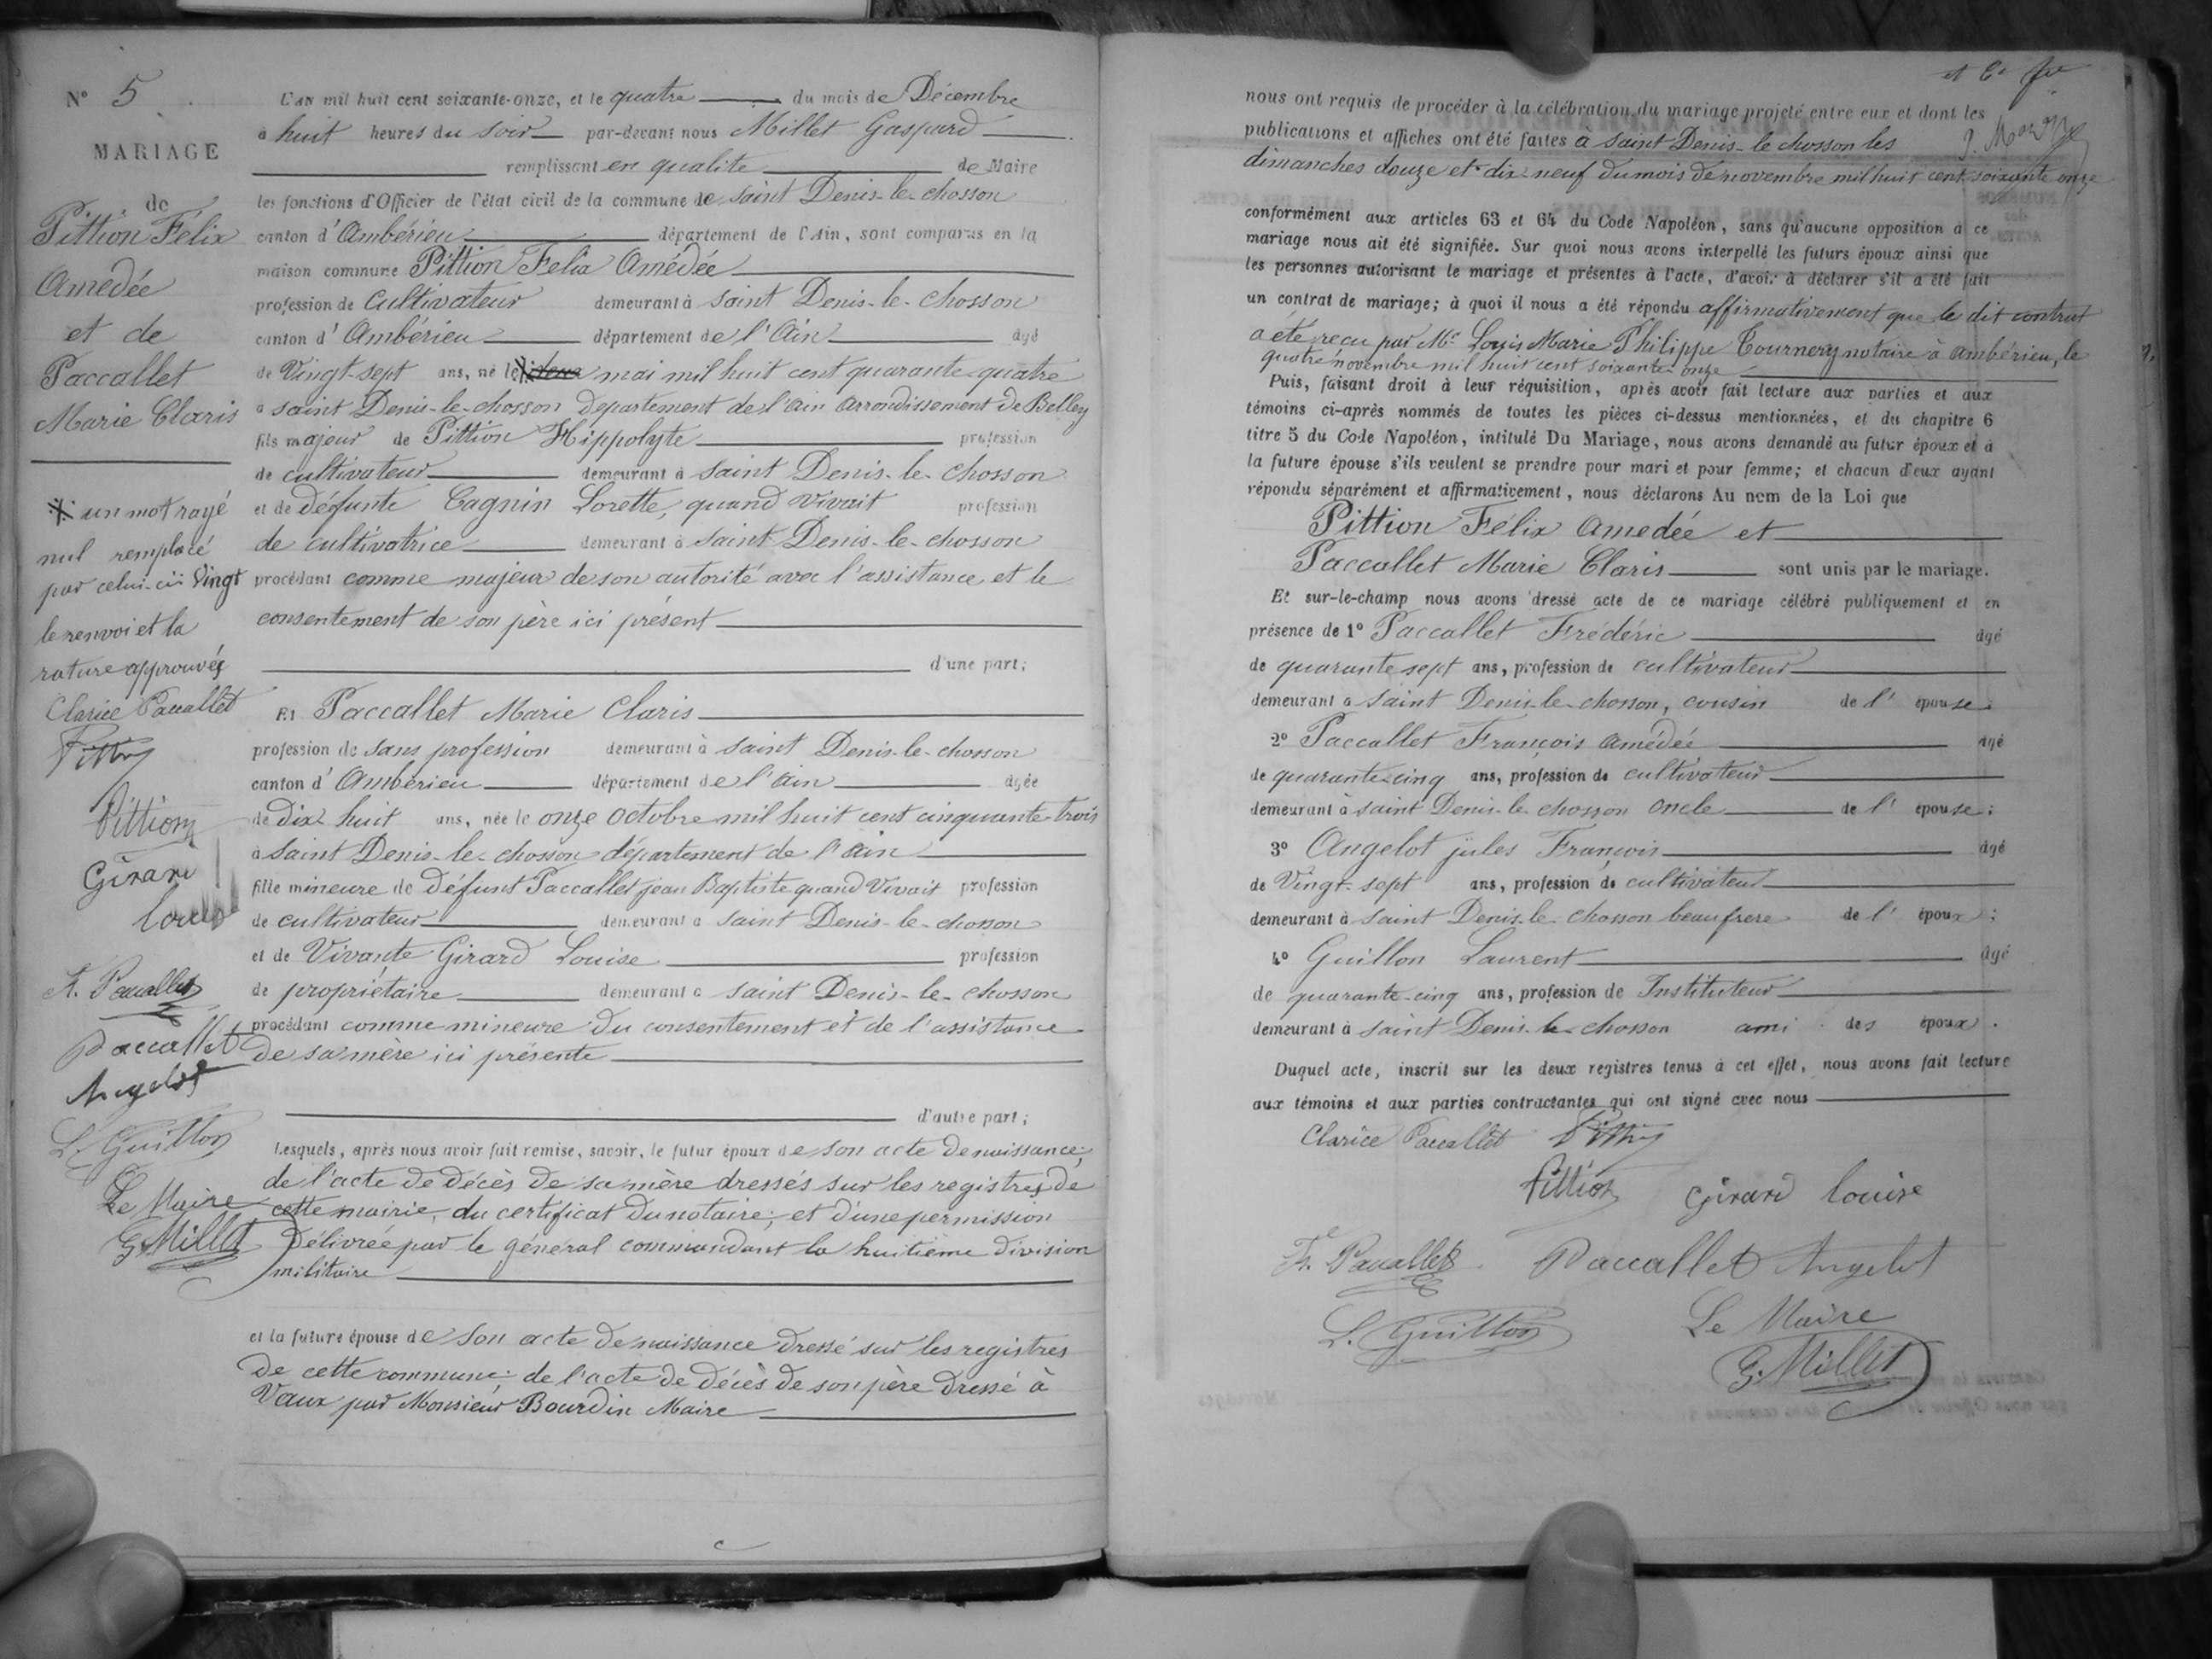 N° 5
MARIAGE
de
Pittion Félix
Amédée
et de
Paccallet
Marie Claris
※ un mot rayé
nul remplacé
par celui-ci: Vingt
le renvoi et la
rature approuvés
Clarice Paccallet
Pittion
Girard
Louise
F. Paccallet
Paccallet
Angelot
L. Guillon
Le Maire
G. Millet
L'AN mil huit cent soixante-onze, et le quatre du mois de Décembre
à huit heures du soir par-devant nous Millet Gaspard
remplissant en qualité de Maire
les fonctions d'Officier de l'état civil de la commune de saint Denis-le-chosson
canton d'Ambérieu département de l'Ain, sont comparus en la
maison commune Pittion Félix Amédée
profession de cultivateur demeurant à saint Denis-le-chosson
canton d'Ambérieu département de l'Ain âgé
de Vingt-sept ans, né le ※ deux mai mil huit cent quarante-quatre
à saint Denis-le-chosson département de l'ain arrondissement de Belley
fils majeur de Pittion Hippolyte profession
de cultivateur demeurant à saint Denis-le-chosson
et de défunte Cagnin Lorette, quand vivait profession
de cultivatrice demeurant à saint Denis-le-chosson
procédant comme majeur de son autorité avec l'assistance et le
consentement de son père ici présent
d'une part;
Et Paccallet Marie Claris
profession de sans profession demeurant à saint Denis-le-chosson
canton d'Ambérieu département de l'ain âgée
de dix-huit ans, née le onze octobre mil huit cent cinquante-trois
à saint Denis-le-chosson département de l'ain
fille mineure de défunt Paccallet jean Baptiste quand Vivait profession
de cultivateur demeurant à saint Denis-le-chosson
et de Vivante Girard Louise profession
de propriétaire demeurant à saint Denis-le-chosson
procédant comme mineure du consentement et de l'assistance
de sa mère ici présente
d'autre part;
Lesquels, après nous avoir fait remise, savoir, le futur époux de son acte de naissance,
de l'acte de décès de sa mère dressés sur les registres de
cette mairie, du certificat du notaire; et d'une permission
délivrée par le général commandant la huitième division
militaire
et la future épouse de son acte de naissance dressé sur les registres
de cette commune: de l'acte de décès de son père dressé à
Vaux par Monsieur Bourdin Maire
nous ont requis de procéder à la célébration du mariage projeté entre eux et dont les
publications et affiches ont été faites à saint Denis-le-chosson les
dimanches douze et dix-neuf du mois de novembre mil huit cent soixante onze
conformément aux articles 63 et 64 du Code Napoléon, sans qu'aucune opposition à ce
mariage nous ait été signifiée. Sur quoi nous avons interpellé les futurs époux ainsi que
les personnes autorisant le mariage et présentes à l'acte, d'avoir à déclarer s'il a été fait
un contrat de mariage; à quoi il nous a été répondu affirmativement que le dit contrat
a été reçu par Me Louis Marie Philippe Tournery notaire à ambérieu, le
quatre novembre mil huit cent soixante-onze
Puis, faisant droit à leur réquisition, après avoir fait lecture aux parties et aux
témoins ci-après nommés de toutes les pièces ci-dessus mentionnées, et du chapitre 6
titre 5 du Code Napoléon, intitulé Du Mariage, nous avons demandé au futur époux et à
la future épouse s'ils veulent se prendre pour mari et pour femme; et chacun d'eux ayant
répondu séparément et affirmativement, nous déclarons Au nom de la Loi que
Pittion Félix amedée et
Paccallet Marie Claris sont unis par le mariage.
Et sur-le-champ nous avons dressé acte de ce mariage célébré publiquement et en
présence de 1° Paccallet Frédéric âgé
de quarante sept ans, profession de cultivateur
demeurant à saint Denis-le-chosson, cousin de l'épouse
2° Paccallet François amédée âgé
de quarante-cinq ans, profession de cultivateur
demeurant à saint Denis-le-chosson oncle de l'épouse;
3° Angelot jules François âgé
de Vingt-sept ans, profession de cultivateur
demeurant à saint Denis-le-chosson beaufrère de l'époux;
4° Guillon Laurent âgé
de quarante-cinq ans, profession de Instituteur
demeurant à saint Denis-le-chosson ami des époux.
Duquel acte, inscrit sur les deux registres tenus à cet effet, nous avons fait lecture
aux témoins et aux parties contractantes qui ont signé avec nous
Clarice Paccallet
Pittion Girard Louise
F. Paccallet Paccallet Angelot
L. Guillon Le Maire
G. Millet